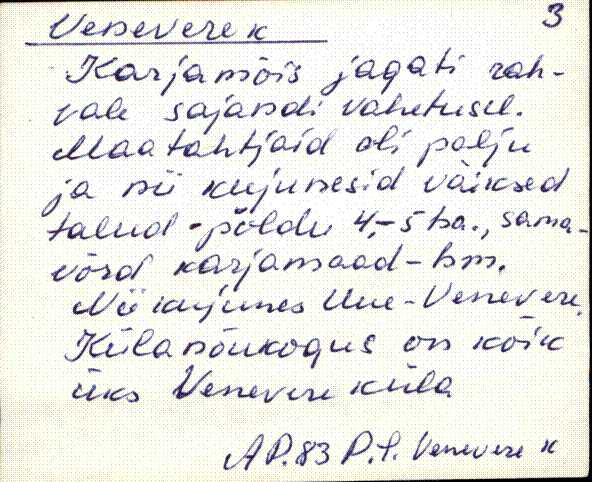 Venevere k 3
Karjamõis jagati rah-
vale sajandi vahetusel.
Maatahtjaid oli palju
ja nii kujunesid väiksed
talud - põldu 4,-5 ha., sama-
võrd karjamaad - hm.
Nii kujunes Uue-Venevere.
Külanõukogus on kõik
üks Venevere küla
AP.83 P.I. Venevere k